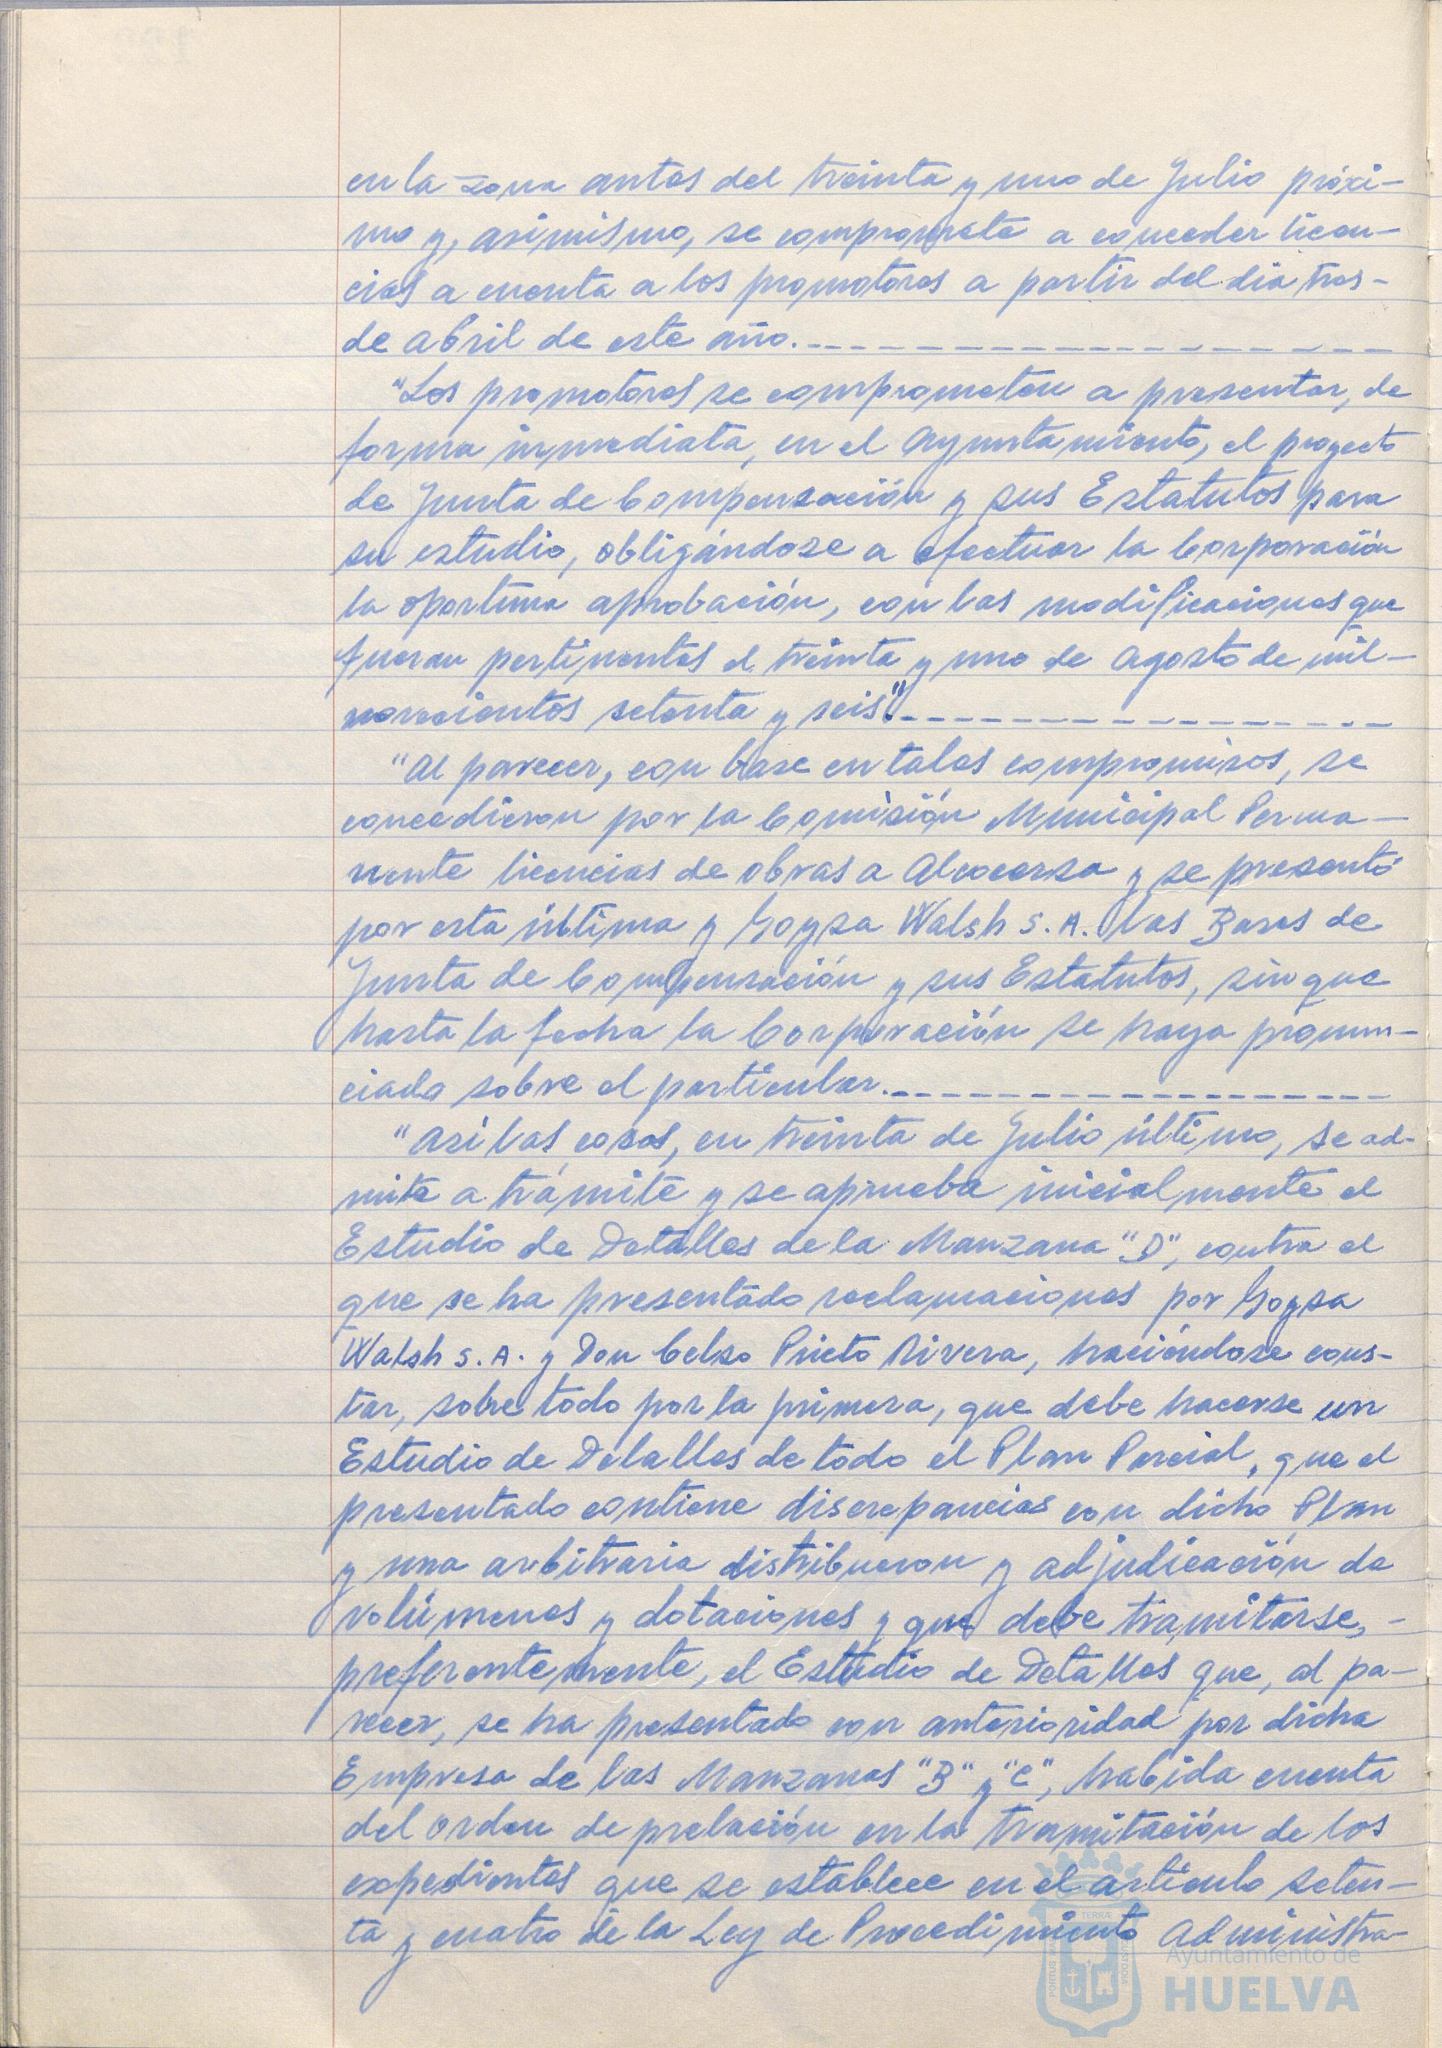 en la zona antes del treinta y uno de Julio próxi-
mo y, asimismo, se compromete a conceder licen-
cias a cuenta a los promotores a partir del dia tres-
de abril de este año.
"Los promotores se comprometen a presentar, de
forma inmediata, en el Ayuntamiento, el proyecto
de Junta de Compensación y sus Estatutos para
su estudio, obligándose a efectuar la Corporación
la oportuna aprobación, con las modificaciones que
fueran pertinentes el treinta y uno de agosto de mil-
novecientos setenta y seis".
"Al parecer, con base en tales compromisos, se
concedieron por la Comisión Municipal Perma-
nente licencias de obras a Alcocersa y se presentó
por esta última y Goysa Walsh S. A. las Bases de
Junta de Compensación y sus Estatutos, sin que
hasta la fecha la Corporación se haya pronun-
ciado sobre el particular.
"Asi las cosas, en treinta de Julio último, se ad-
mite a trámite y se aprueba inicialmente el
Estudio de Detalles de la Manzana "D", contra el
que se ha presentado reclamaciones por Goysa
Walsh S. A. y Don Celso Prieto Rivera, haciéndose cons-
tar, sobre todo por la primera, que debe hacerse un
Estudio de Detalles de todo el Plan Parcial, que el
presentado contiene discrepancias con dicho Plan
y una arbitraria distribucion y adjudicación de
volúmenes y dotaciones y que debe tramitarse, -
preferentemente, el Estudio de Detalles que, al pa-
recer, se ha presentado con anterioridad por dicha
Empresa de las Manzanas "B" y "C", habida cuenta
del orden de prelación en la tramitación de los
expedientes que se establece en el artículo seten-
ta y cuatro de la Ley de Procedimiento Administra-
Ayuntamiento de
HUELVA